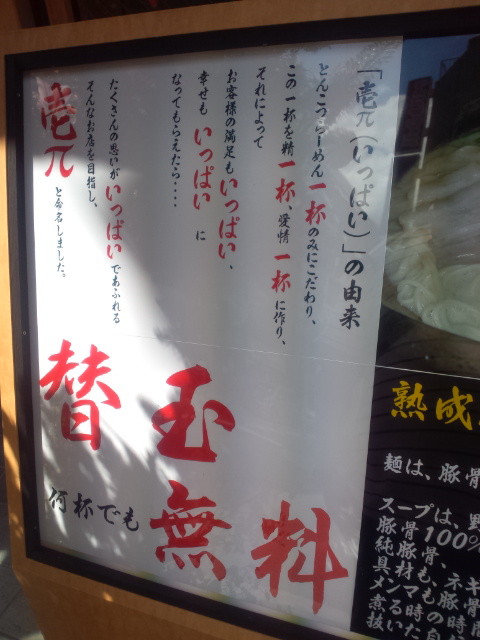 「壱π(いっぱい)」の由来
とんこつらーめん一杯のみにこだわり、
この一杯を精一杯、愛情一杯に作り、
それによって
お客様の満足もいっぱい、
幸せもいっぱいに
なってもらえたら‥‥
たくさんの思いがいっぱいであふれる
そんなお店を目指し、
壱πと命名しました。
替玉
何杯でも
無料
熟成
麺は、豚骨
スープは、野
豚骨100%
純豚骨、
具材も、ネギ
メンマもの豚骨
煮るい時時用
抜いた